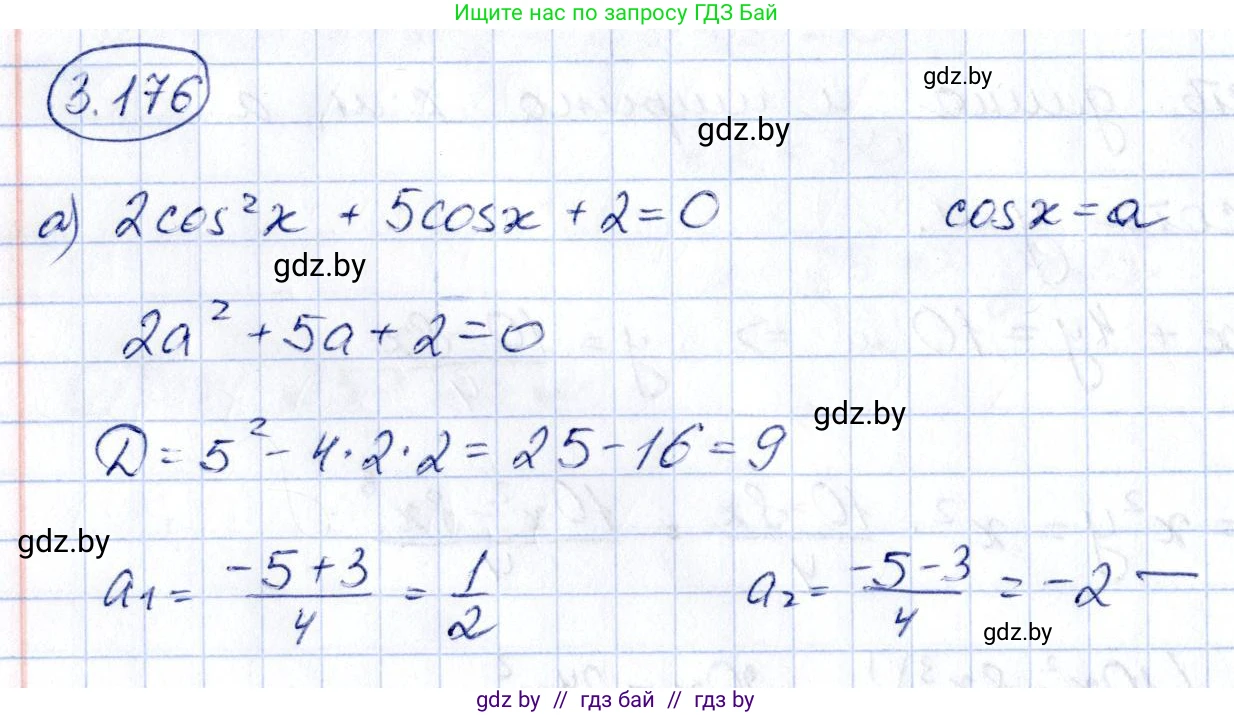 Ищите нас по запросу ГДЗ Бай
3.176
gdz.by
gdz.by
а) 2cos²x + 5cosx + 2 = 0 cosx = a
gdz.by
2a² + 5a + 2 = 0
gdz.by
D = 5² - 4·2·2 = 25 - 16 = 9
gdz.by
a₁ = (-5+3)/4 = 1/2 a₂ = (-5-3)/4 = -2 —
gdz.by
gdz by // гдз бай // гдз by